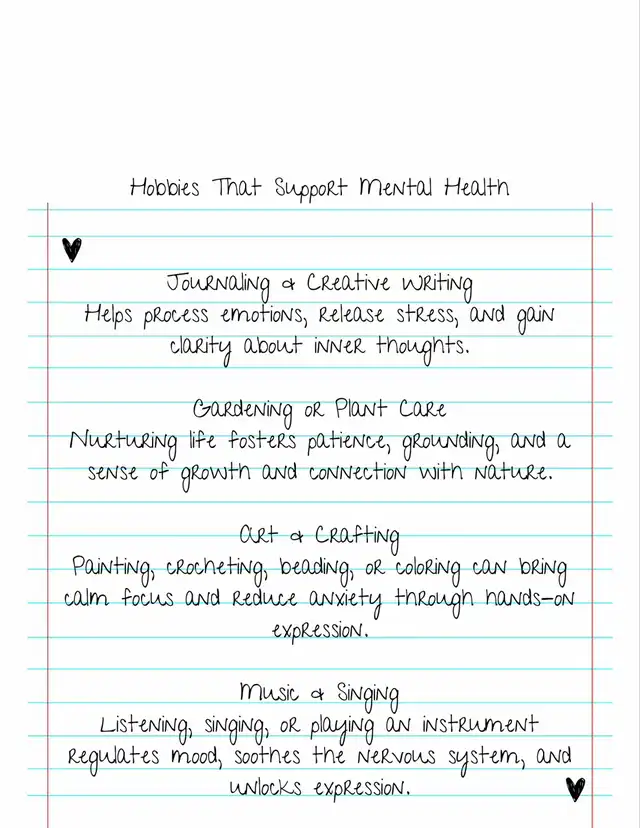 Hobbies That Support Mental Health
Journaling & Creative Writing
Helps process emotions, release stress, and gain
clarity about inner thoughts.
Gardening or Plant Care
Nurturing life fosters patience, grounding, and a
sense of growth and connection with nature.
Art & Crafting
Painting, crocheting, beading, or coloring can bring
calm focus and reduce anxiety through hands-on
expression.
Music & Singing
Listening, singing, or playing an instrument
regulates mood, soothes the nervous system, and
unlocks expression.